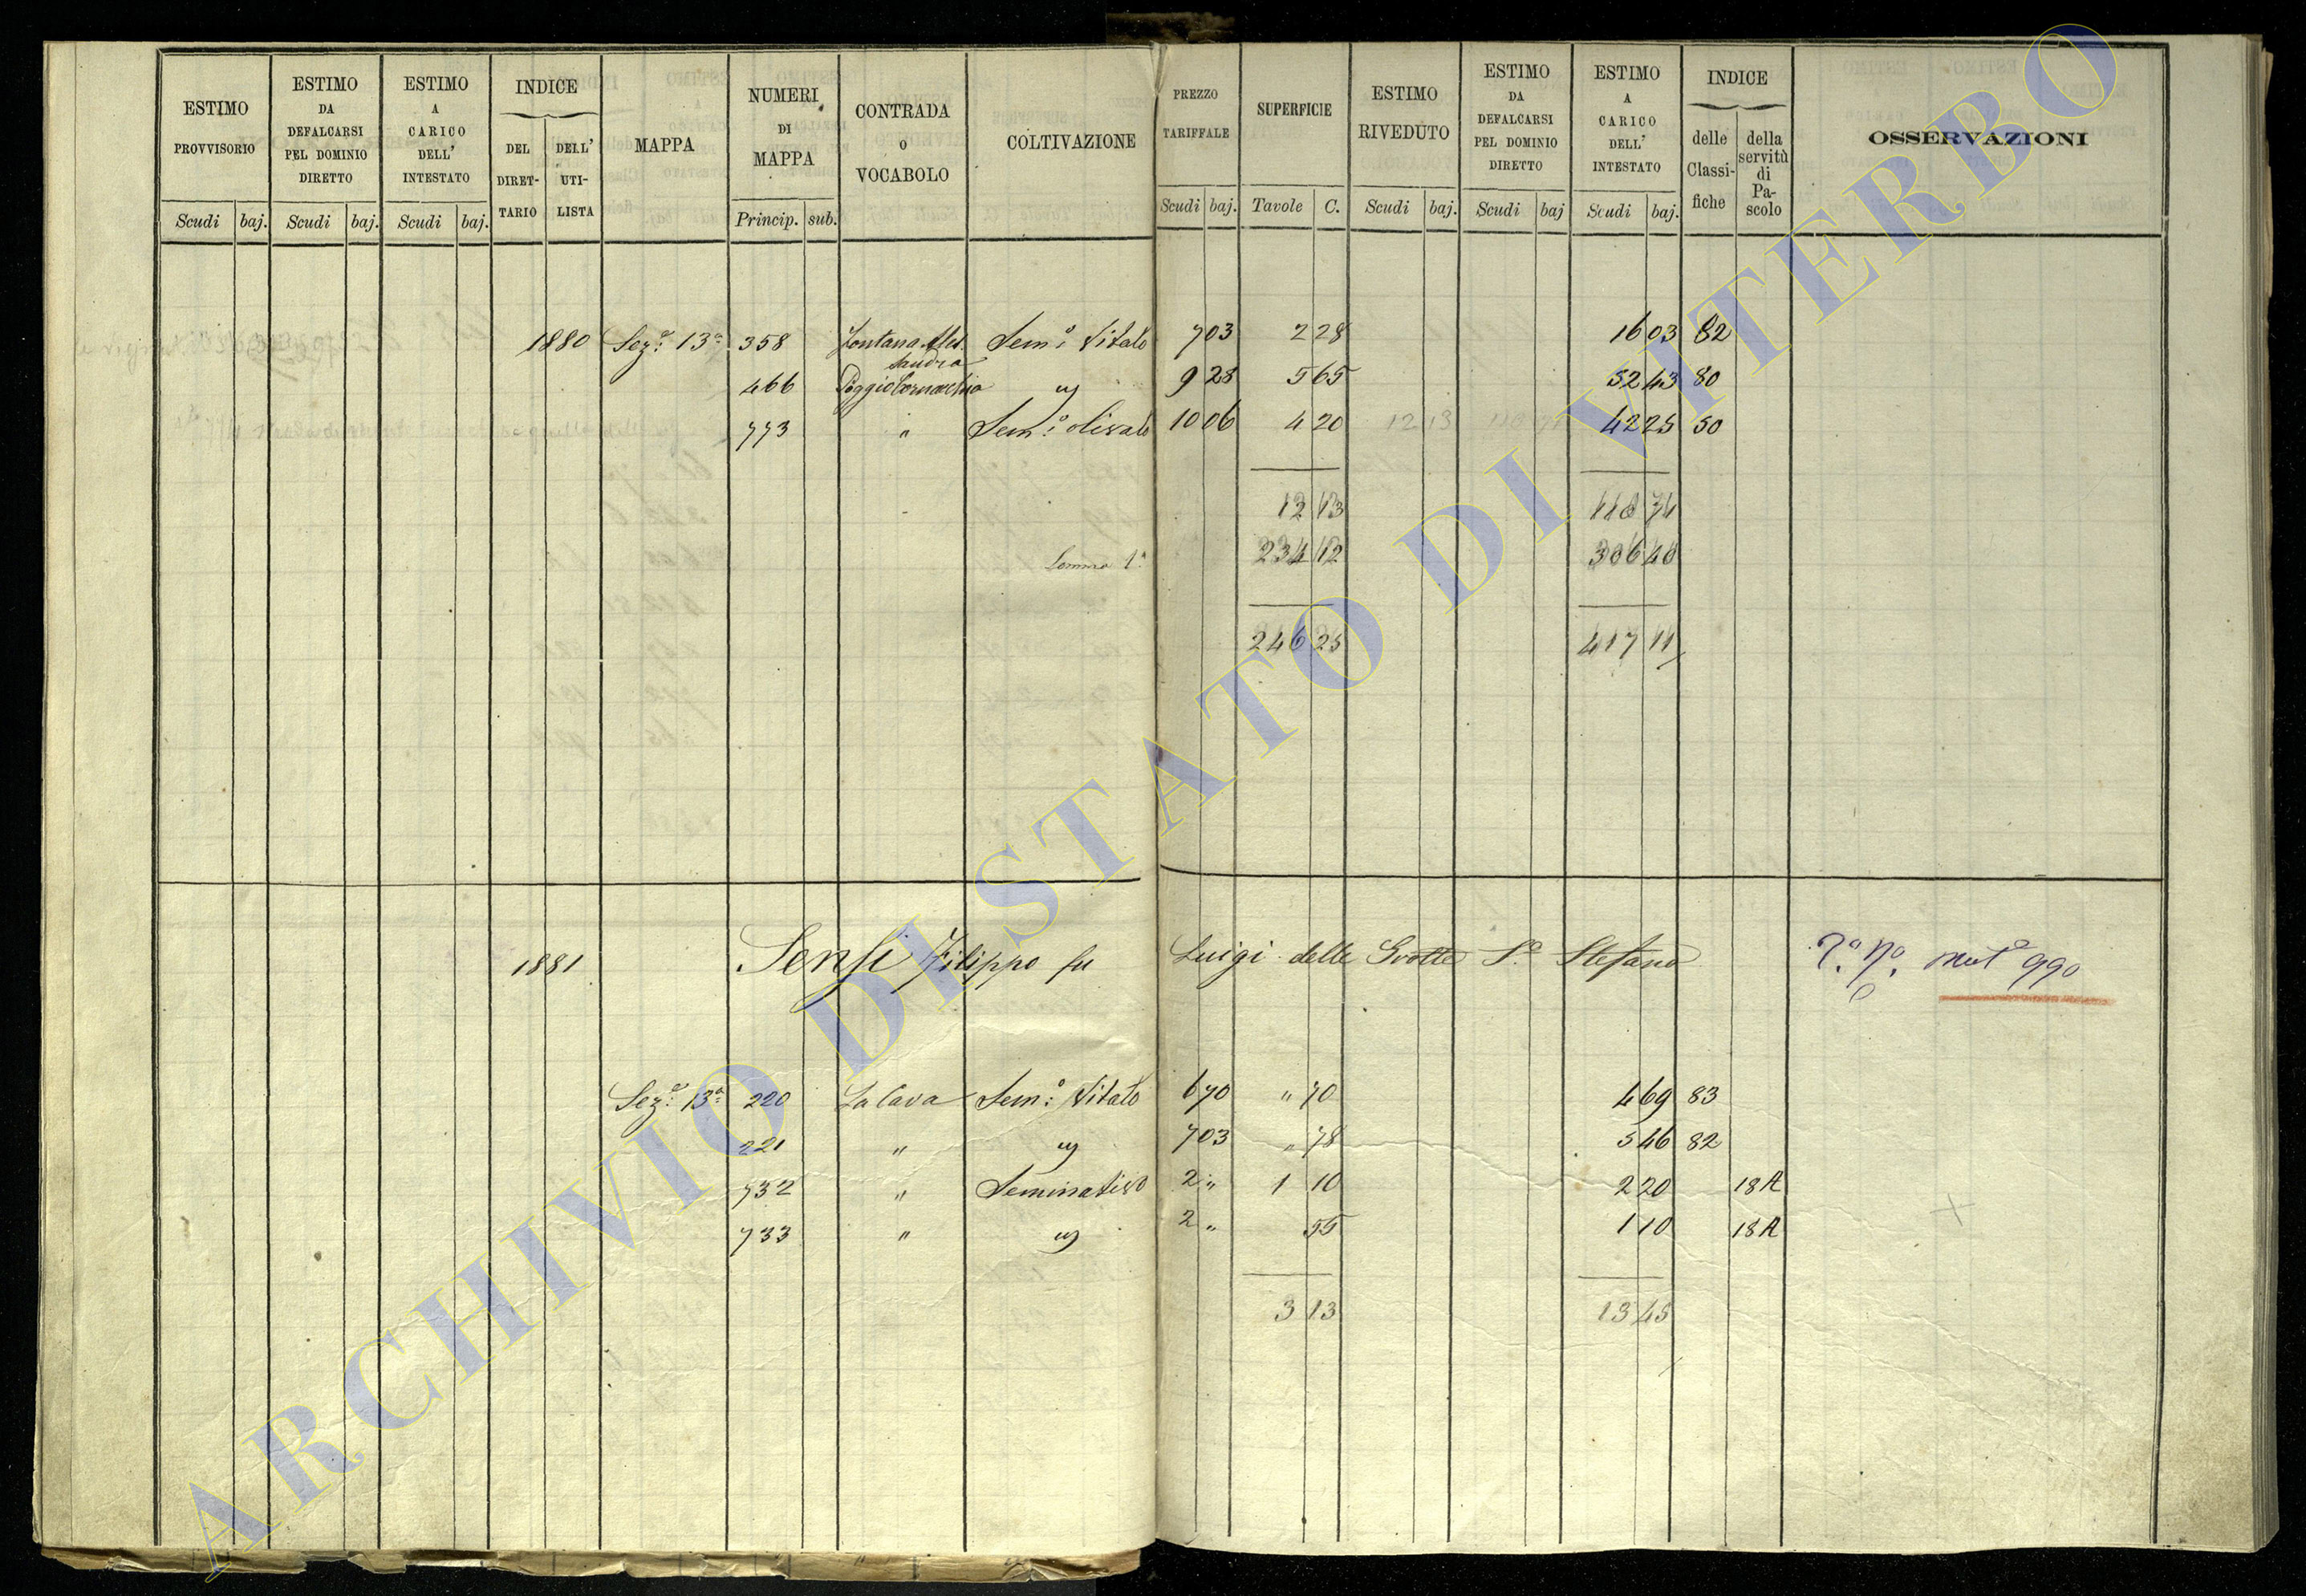 ESTIMO PROVVISORIO | ESTIMO DA DEFALCARSI PEL DOMINIO DIRETTO | ESTIMO A CARICO DELL' INTESTATO | INDICE DEL DIRET-TARIO | DELL' UTI-LISTA | MAPPA | NUMERI DI MAPPA | CONTRADA O VOCABOLO | COLTIVAZIONE | PREZZO TARIFFALE | SUPERFICIE | ESTIMO RIVEDUTO | ESTIMO DA DEFALCARSI PEL DOMINIO DIRETTO | ESTIMO A CARICO DELL' INTESTATO | INDICE delle Classi-fiche | della servitù di Pa-scolo | OSSERVAZIONI
Scudi baj. Scudi baj. Scudi baj. Princip. sub. Scudi baj. Tavole C. Scudi baj. Scudi baj Scudi baj.
1880 Seze. 13a 358 Fontana Ales sandra Semo: Vitato 7 03 2 28 16 03 82
466 Poggio Cornacchia " 9 28 5 65 52 43 80
773 " Semo: olivato 10 06 4 20 12 13 42 25 50
12 13
Somma 1a 234 12 306 40
246 25 417 11
1881 Sensi Filippo fu Luigi delle Grotte So Stefano muto 990
Seze. 13a 220 La Cava Semo: Vitato 6 70 " 70 4 69 83
221 " " 7 03 " 78 5 46 82
732 " Seminativo 2 " 1 10 2 20 18A
733 " " 2 " 55 1 10 18A
3 13 13 45
ARCHIVIO DI STATO DI VITERBO